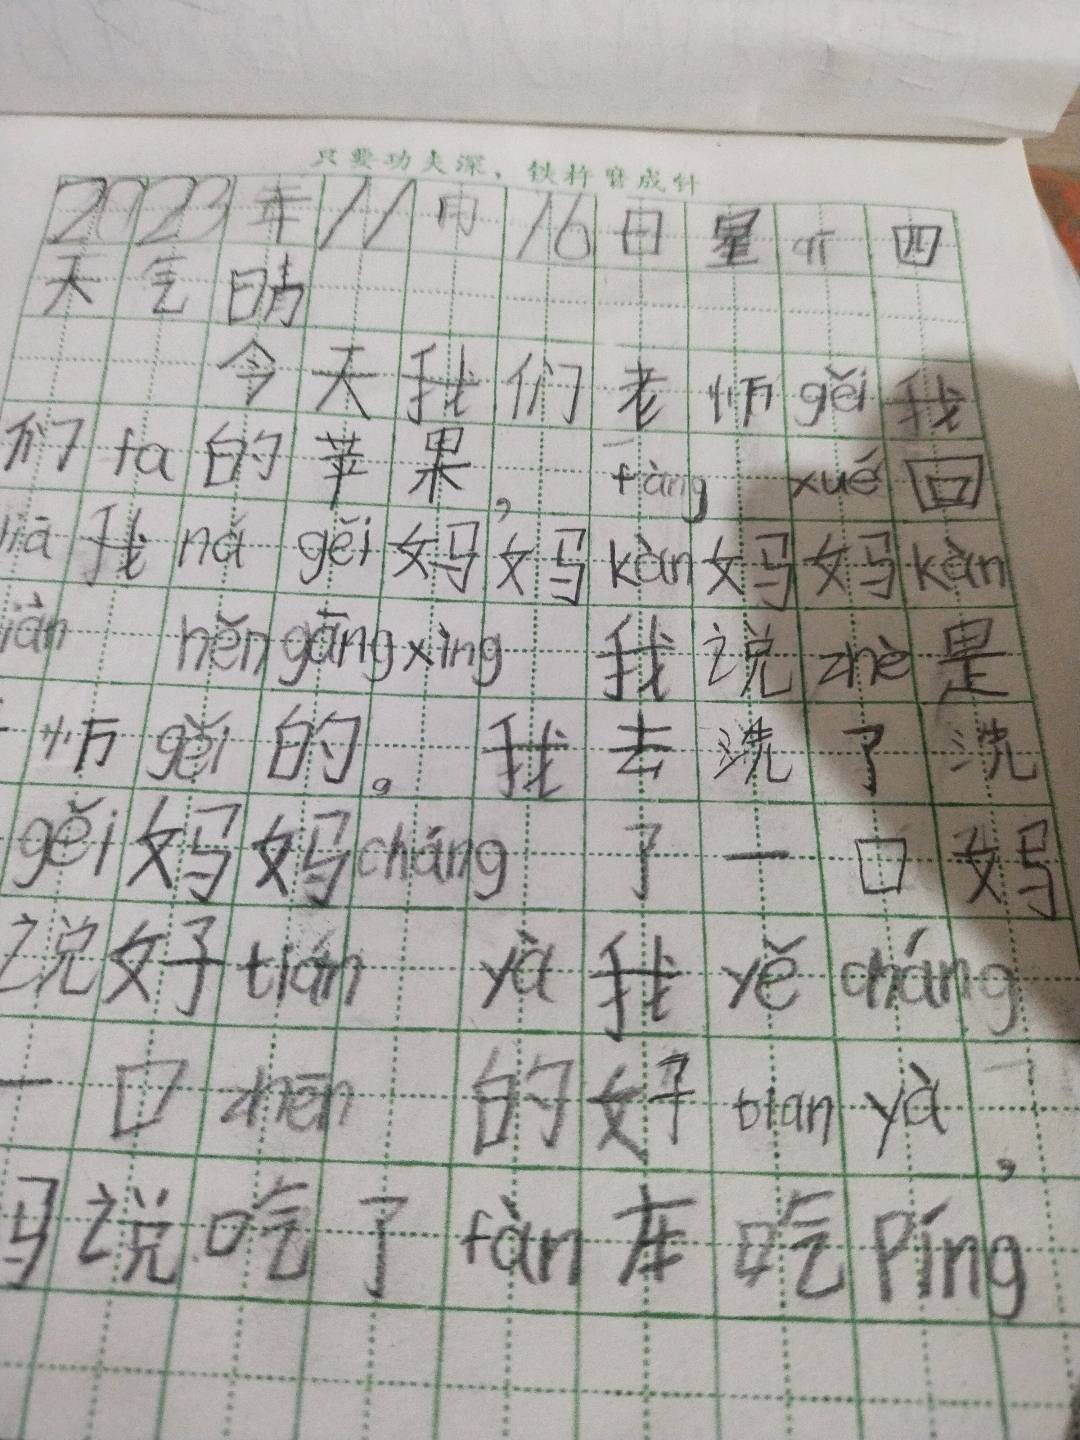 只要功夫深，铁杵磨成针
2023年11月16日星 四
天气晴
今天我们老师gěi我
们fa的苹果，fàng xué回
jiā我ná gěi妈妈kàn妈妈kàn
jiàn hěn gāng xìng 我说zhè是
师gěi的。我去洗了洗
gěi妈妈cháng了一口妈
说好tián yà我yě cháng
一口zhēn的好tian yà，
妈说吃了fàn在吃Píng